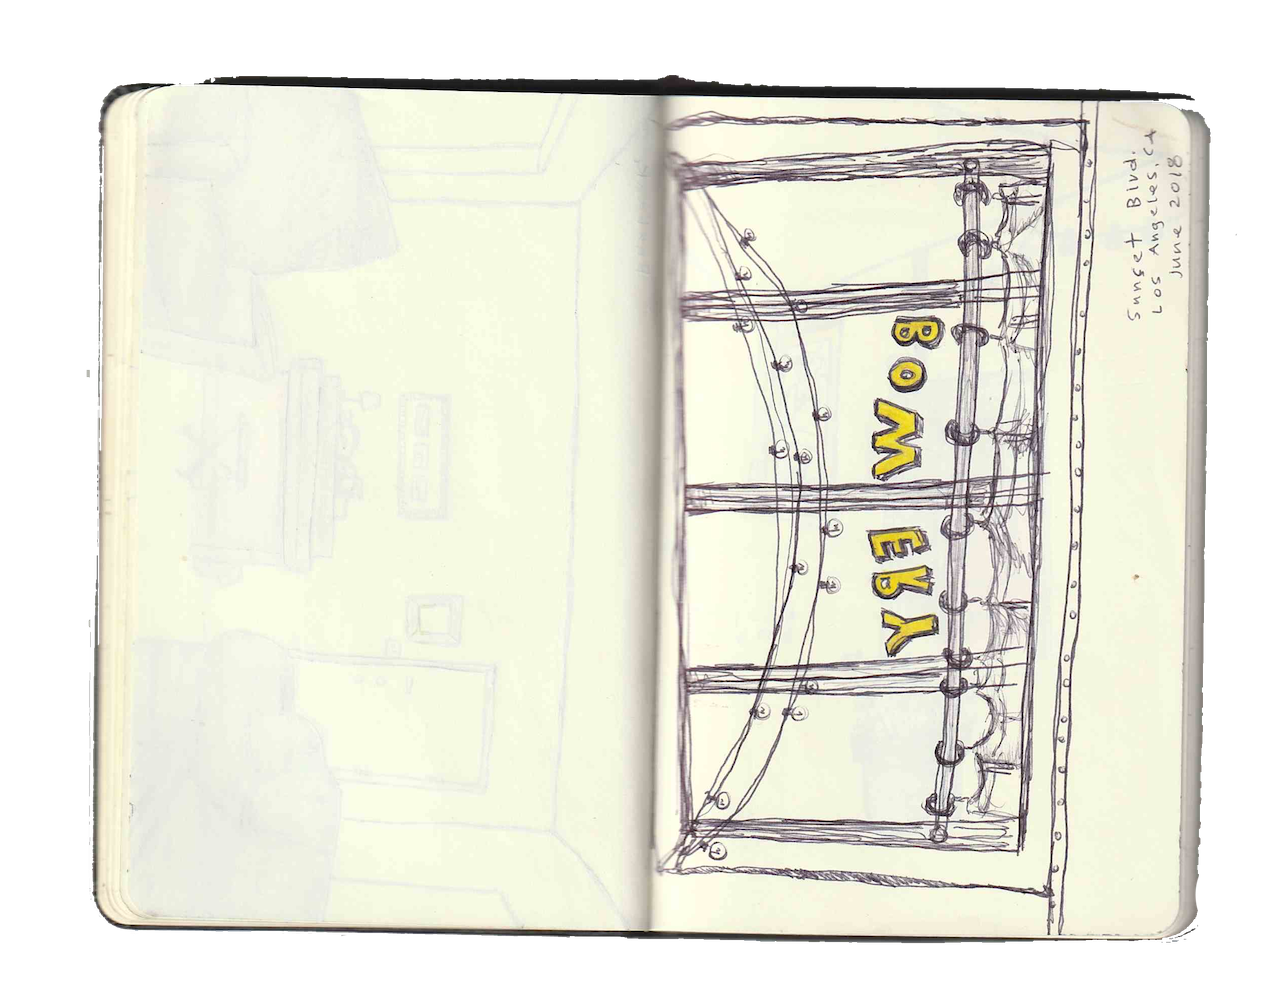 BOWERY
Sunset Blvd.
Los Angeles, CA
June 2018